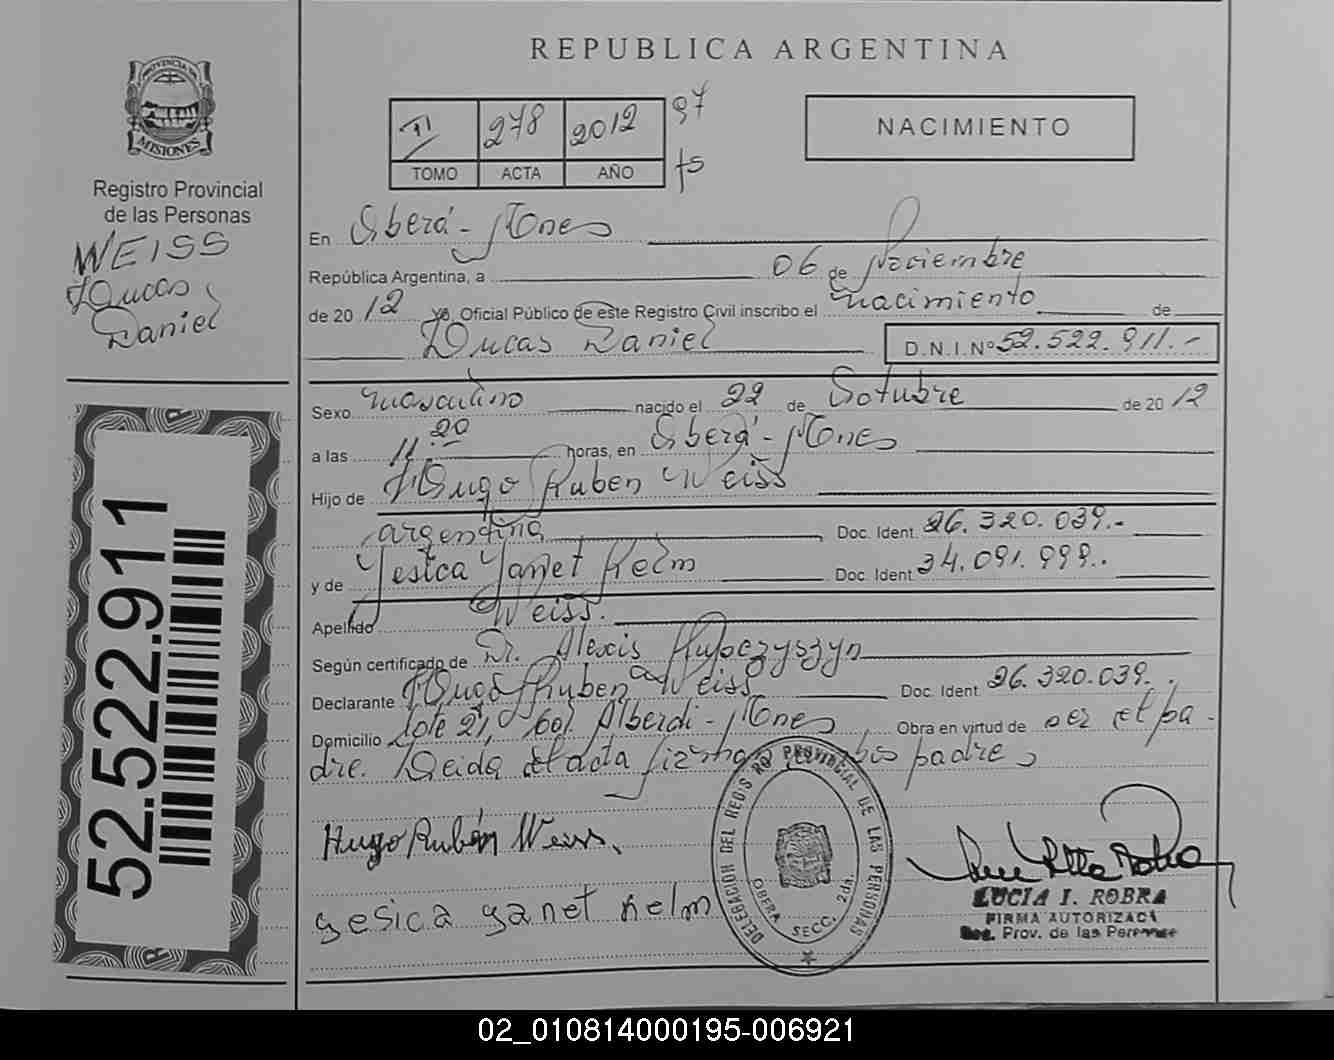 REPUBLICA ARGENTINA
PROVINCIA DE
MISIONES
Registro Provincial
de las Personas
WEISS
Lucas
Daniel
II 278 2012 97
TOMO ACTA AÑO fs
NACIMIENTO
En Oberá - Mnes
República Argentina, a 06 de Noviembre
de 2012 yo, Oficial Público de este Registro Civil inscribo el nacimiento de
Lucas Daniel D.N.I.Nº 52.522.911.-
Sexo masculino nacido el 22 de Octubre de 2012
a las 11.20 horas, en Oberá - Mnes
Hijo de Hugo Ruben Weiss
argentina Doc. Ident. 26.320.039.-
y de Yesica Yanet Kelm Doc. Ident. 34.091.999..
Apellido Weiss.
Según certificado de Dr. Alexis
Declarante Hugo Ruben Weiss Doc. Ident. 26.320.039.
Domicilio Lote 21, Col. Alberdi - Mnes Obra en virtud de ser el pa-
dre. Leida el acta padre
Hugo Rubén Weiss.
yesica yanet kelm
DELEGACION DEL REGISTRO PROVINCIAL DE LAS PERSONAS
OBERA SECC. 2da.
LUCIA I. ROBRA
FIRMA AUTORIZADA
Reg. Prov. de las Personas
52.522.911
02_010814000195-006921